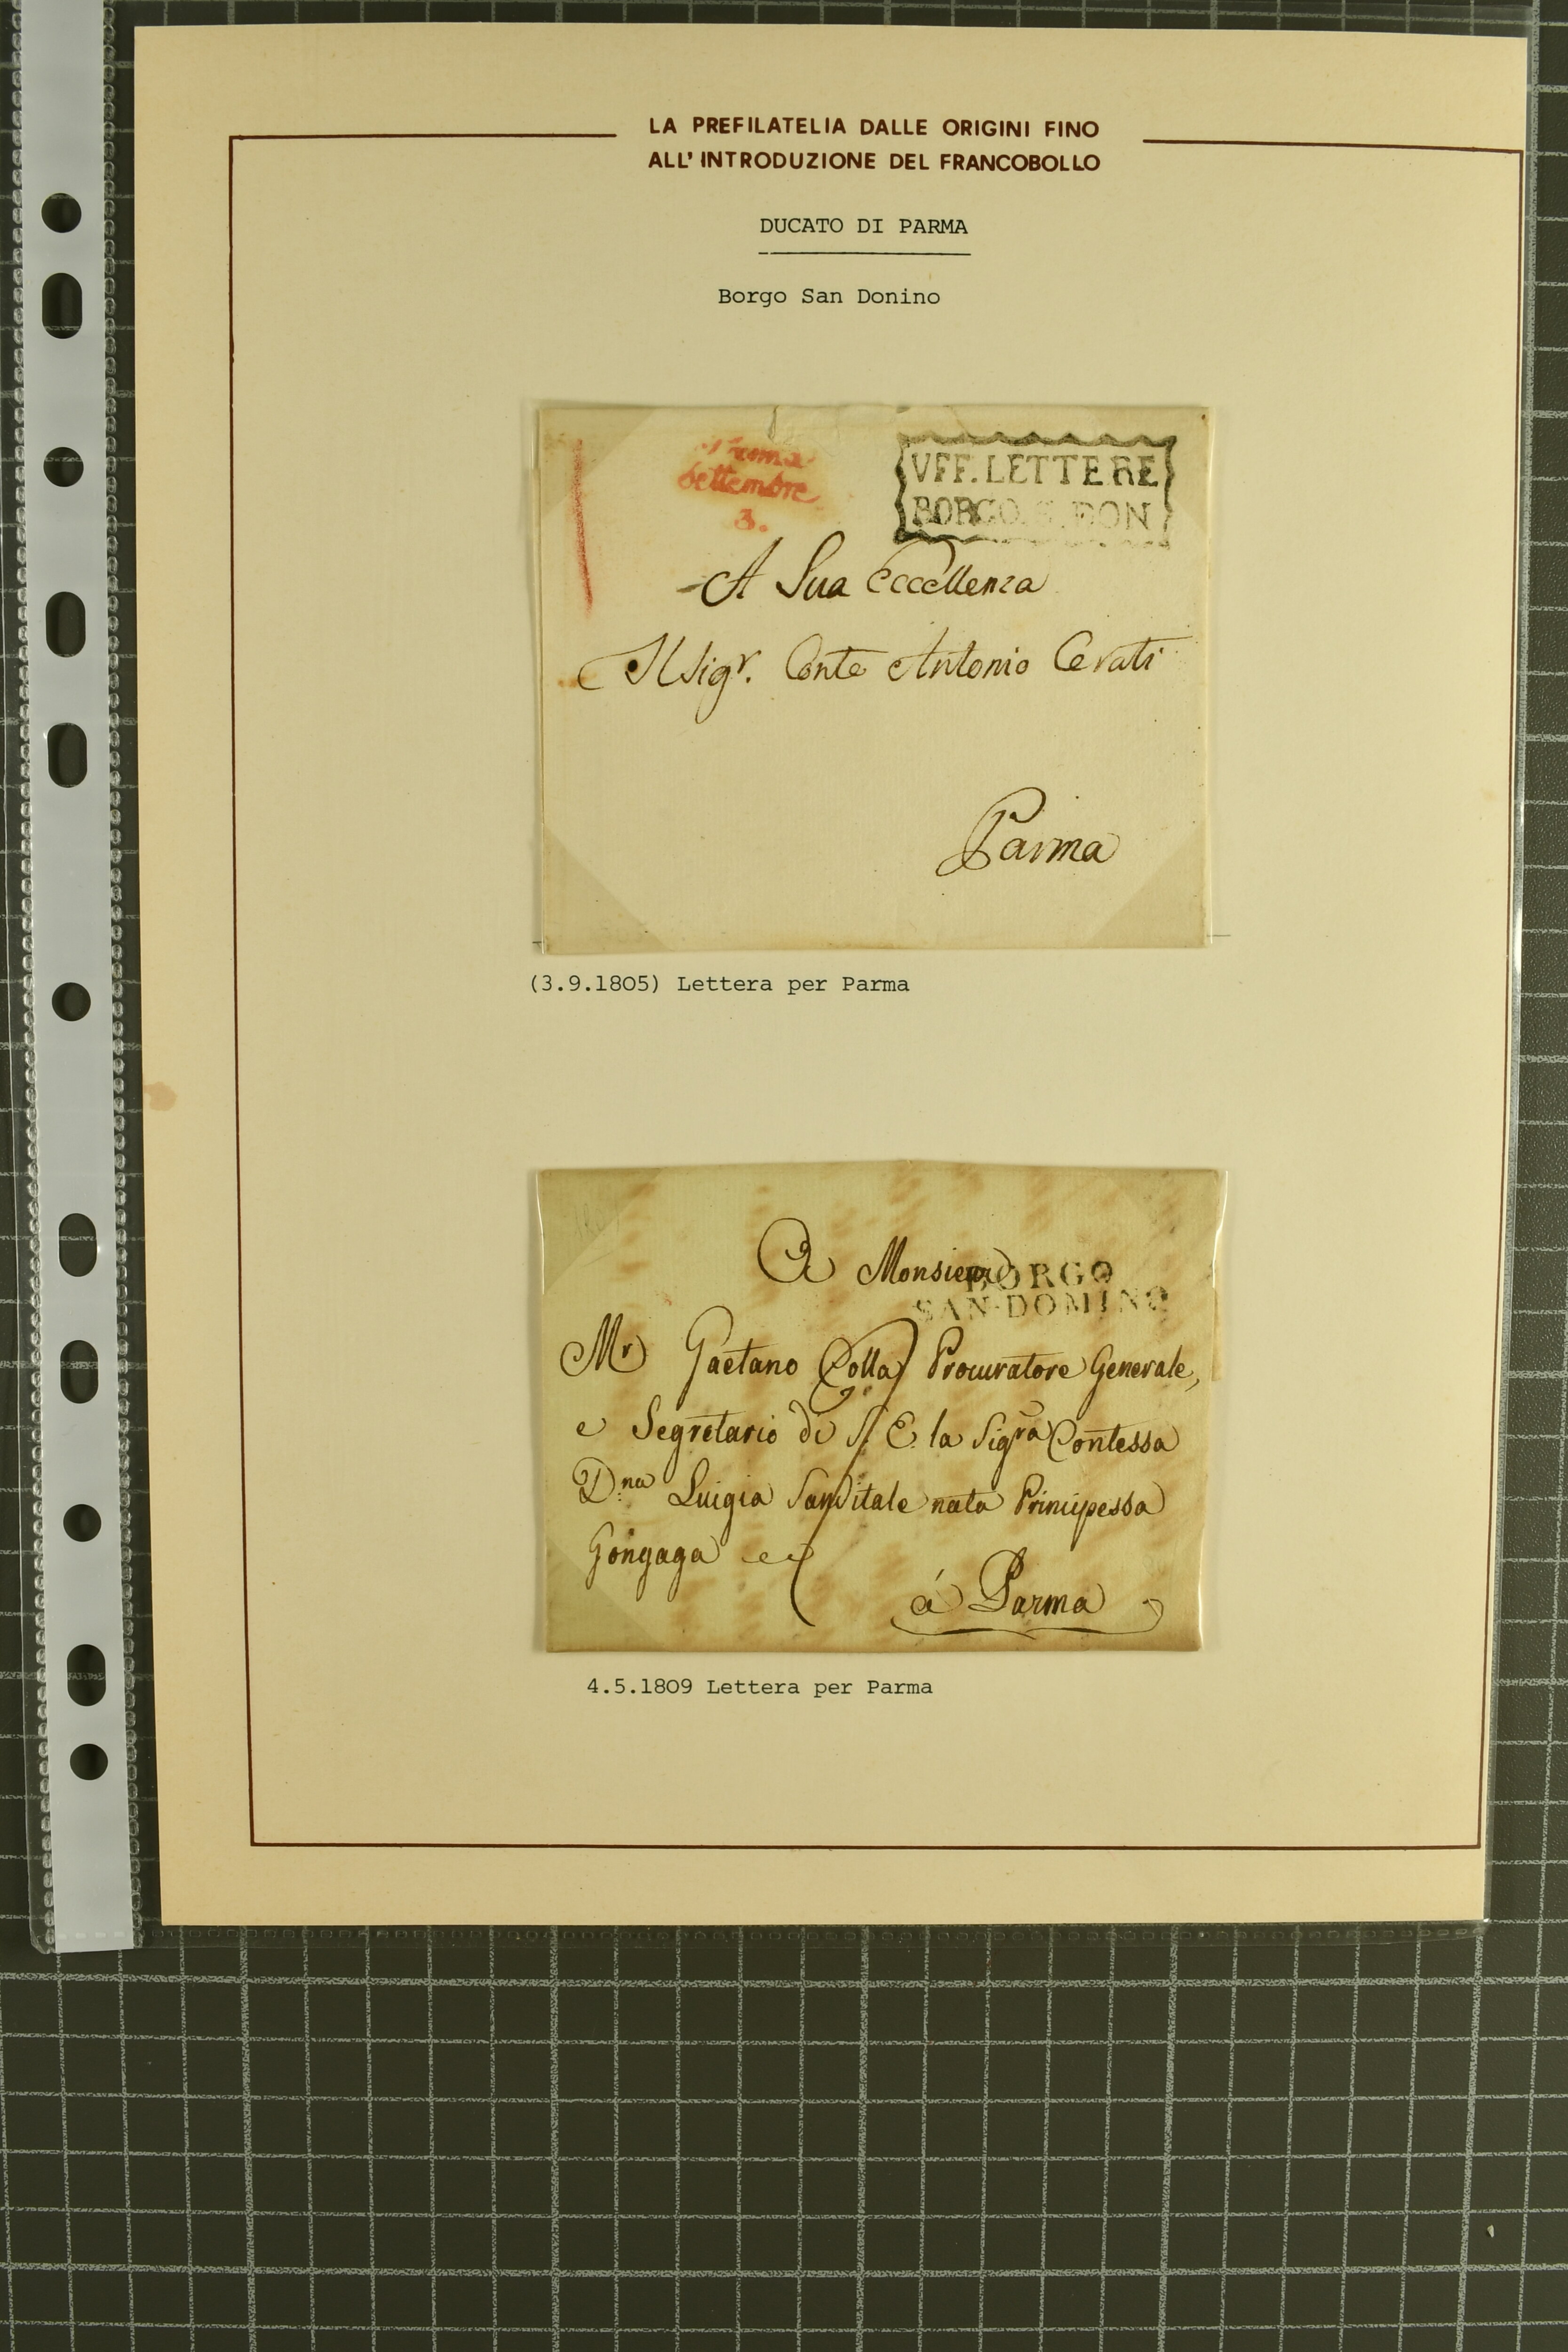 LA PREFILATELIA DALLE ORIGINI FINO
ALL'INTRODUZIONE DEL FRANCOBOLLO
DUCATO DI PARMA
Borgo San Donino
Settembre
3.
VFF. LETTERE
BORGO. S. DON
A Sua Eccellenza
Il Sigr. Conte Antonio Cerati
Parma
(3.9.1805) Lettera per Parma
A Monsieur
BORGO
SAN-DOMINO
Mr Gaetano Colla Procuratore Generale,
e Segretario di S. E. la Sigra Contessa
Dna Luigia Sanvitale nata Principessa
Gonzaga
á Parma
4.5.1809 Lettera per Parma